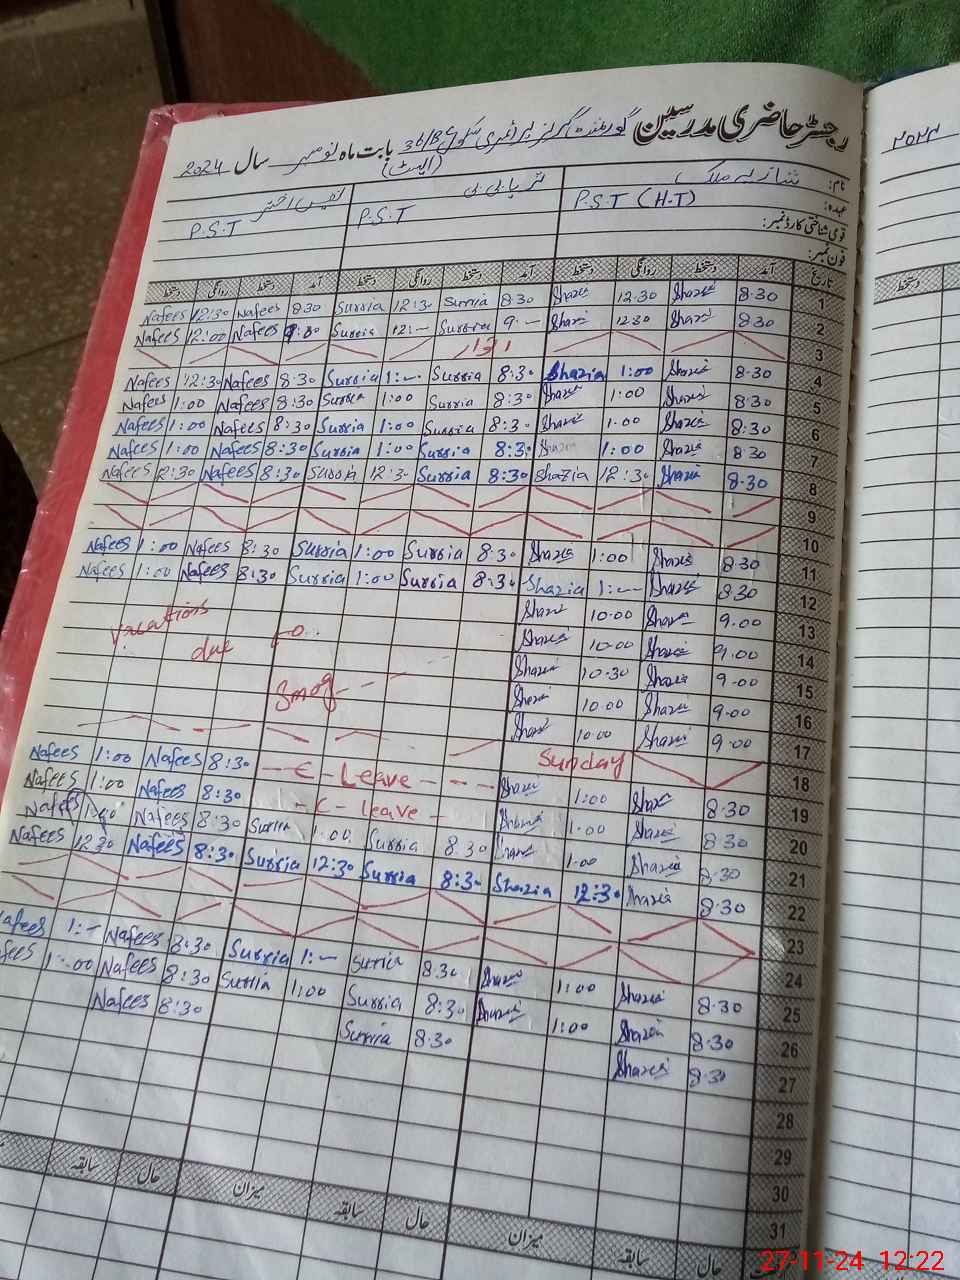 رجسٹر حاضری مدرسین گورنمنٹ گرلز پرائمری سکول 36/BC بابت ماہ نومبر سال 2024
(ایسٹ)
نام: شازیہ ملک ثریا بی بی نفیس اختر
عہدہ: P.S.T (H.T) P.S.T P.S.T
قومی شناختی کارڈ نمبر:
فون نمبر:
تاریخ آمد دستخط روانگی دستخط آمد دستخط روانگی دستخط آمد دستخط روانگی دستخط
Nafees 12:30 Nafees 8:30 Surria 12:30 Surria 8:30 Shazia 12.30 Shazia 8.30 1
Nafees 12:00 Nafees Surria 12:- Surria 9:- Shazia 12:30 Shazia 8.30 2
اتوار 3
Nafees 12:30 Nafees 8:30 Surria 1:- Surria 8:30 Shazia 1:00 Shazia 8.30 4
Nafees 1:00 Nafees 8:30 Surria 1:00 Surria 8:30 Shazia 1:00 Shazia 8.30 5
Nafees 1:00 Nafees 8:30 Surria 1:00 Surria 8:30 Shazia 1.00 Shazia 8.30 6
Nafees 1:00 Nafees 8:30 Surria 1:00 Surria 8:30 Shazia 1:00 Shazia 8.30 7
Nafees 12:30 Nafees 8:30 Surria 12:30 Surria 8:30 Shazia 12:30 Shazia 8.30 8
9
10
Nafees 1:00 Nafees 8:30 Surria 1:00 Surria 8:30 Shazia 1:00 Shazia 8.30 11
Nafees 1:00 Nafees 8:30 Surria 1:00 Surria 8:30 Shazia 1:- Shazia 8.30 12
Vacations Shazia 10.00 Shazia 9.00 13
due to Shazia 10.00 Shazia 9.00 14
Smog Shazia 10.30 Shazia 9.00 15
Shazia 10.00 Shazia 9.00 16
Shazia 10.00 Shazia 9.00 17
Sunday 18
Nafees 1:00 Nafees 8:30 C - Leave Shazia 1:00 Shazia 8.30 19
Nafees 1:00 Nafees 8:30 C - leave Shazia 1:00 Shazia 8.30 20
Nafees Nafees 8:30 Surria 1:00 Surria 8:30 Shazia 1:00 Shazia 8.30 21
Nafees 12:30 Nafees 8:30 Surria 12:30 Surria 8:30 Shazia 12:30 Shazia 8.30 22
23
24
Nafees 1:- Nafees 8:30 Surria 1:- Surria 8:30 Shazia 1:00 Shazia 8.30 25
Nafees 1:00 Nafees 8:30 Surria 1:00 Surria 8:30 Shazia 1:00 Shazia 8.30 26
Nafees 8:30 Surria 8:30 Shazia 8.30 27
28
29
30
31
حال سابقہ میزان حال سابقہ میزان حال سابقہ
دستخط
27-11-24 12:22